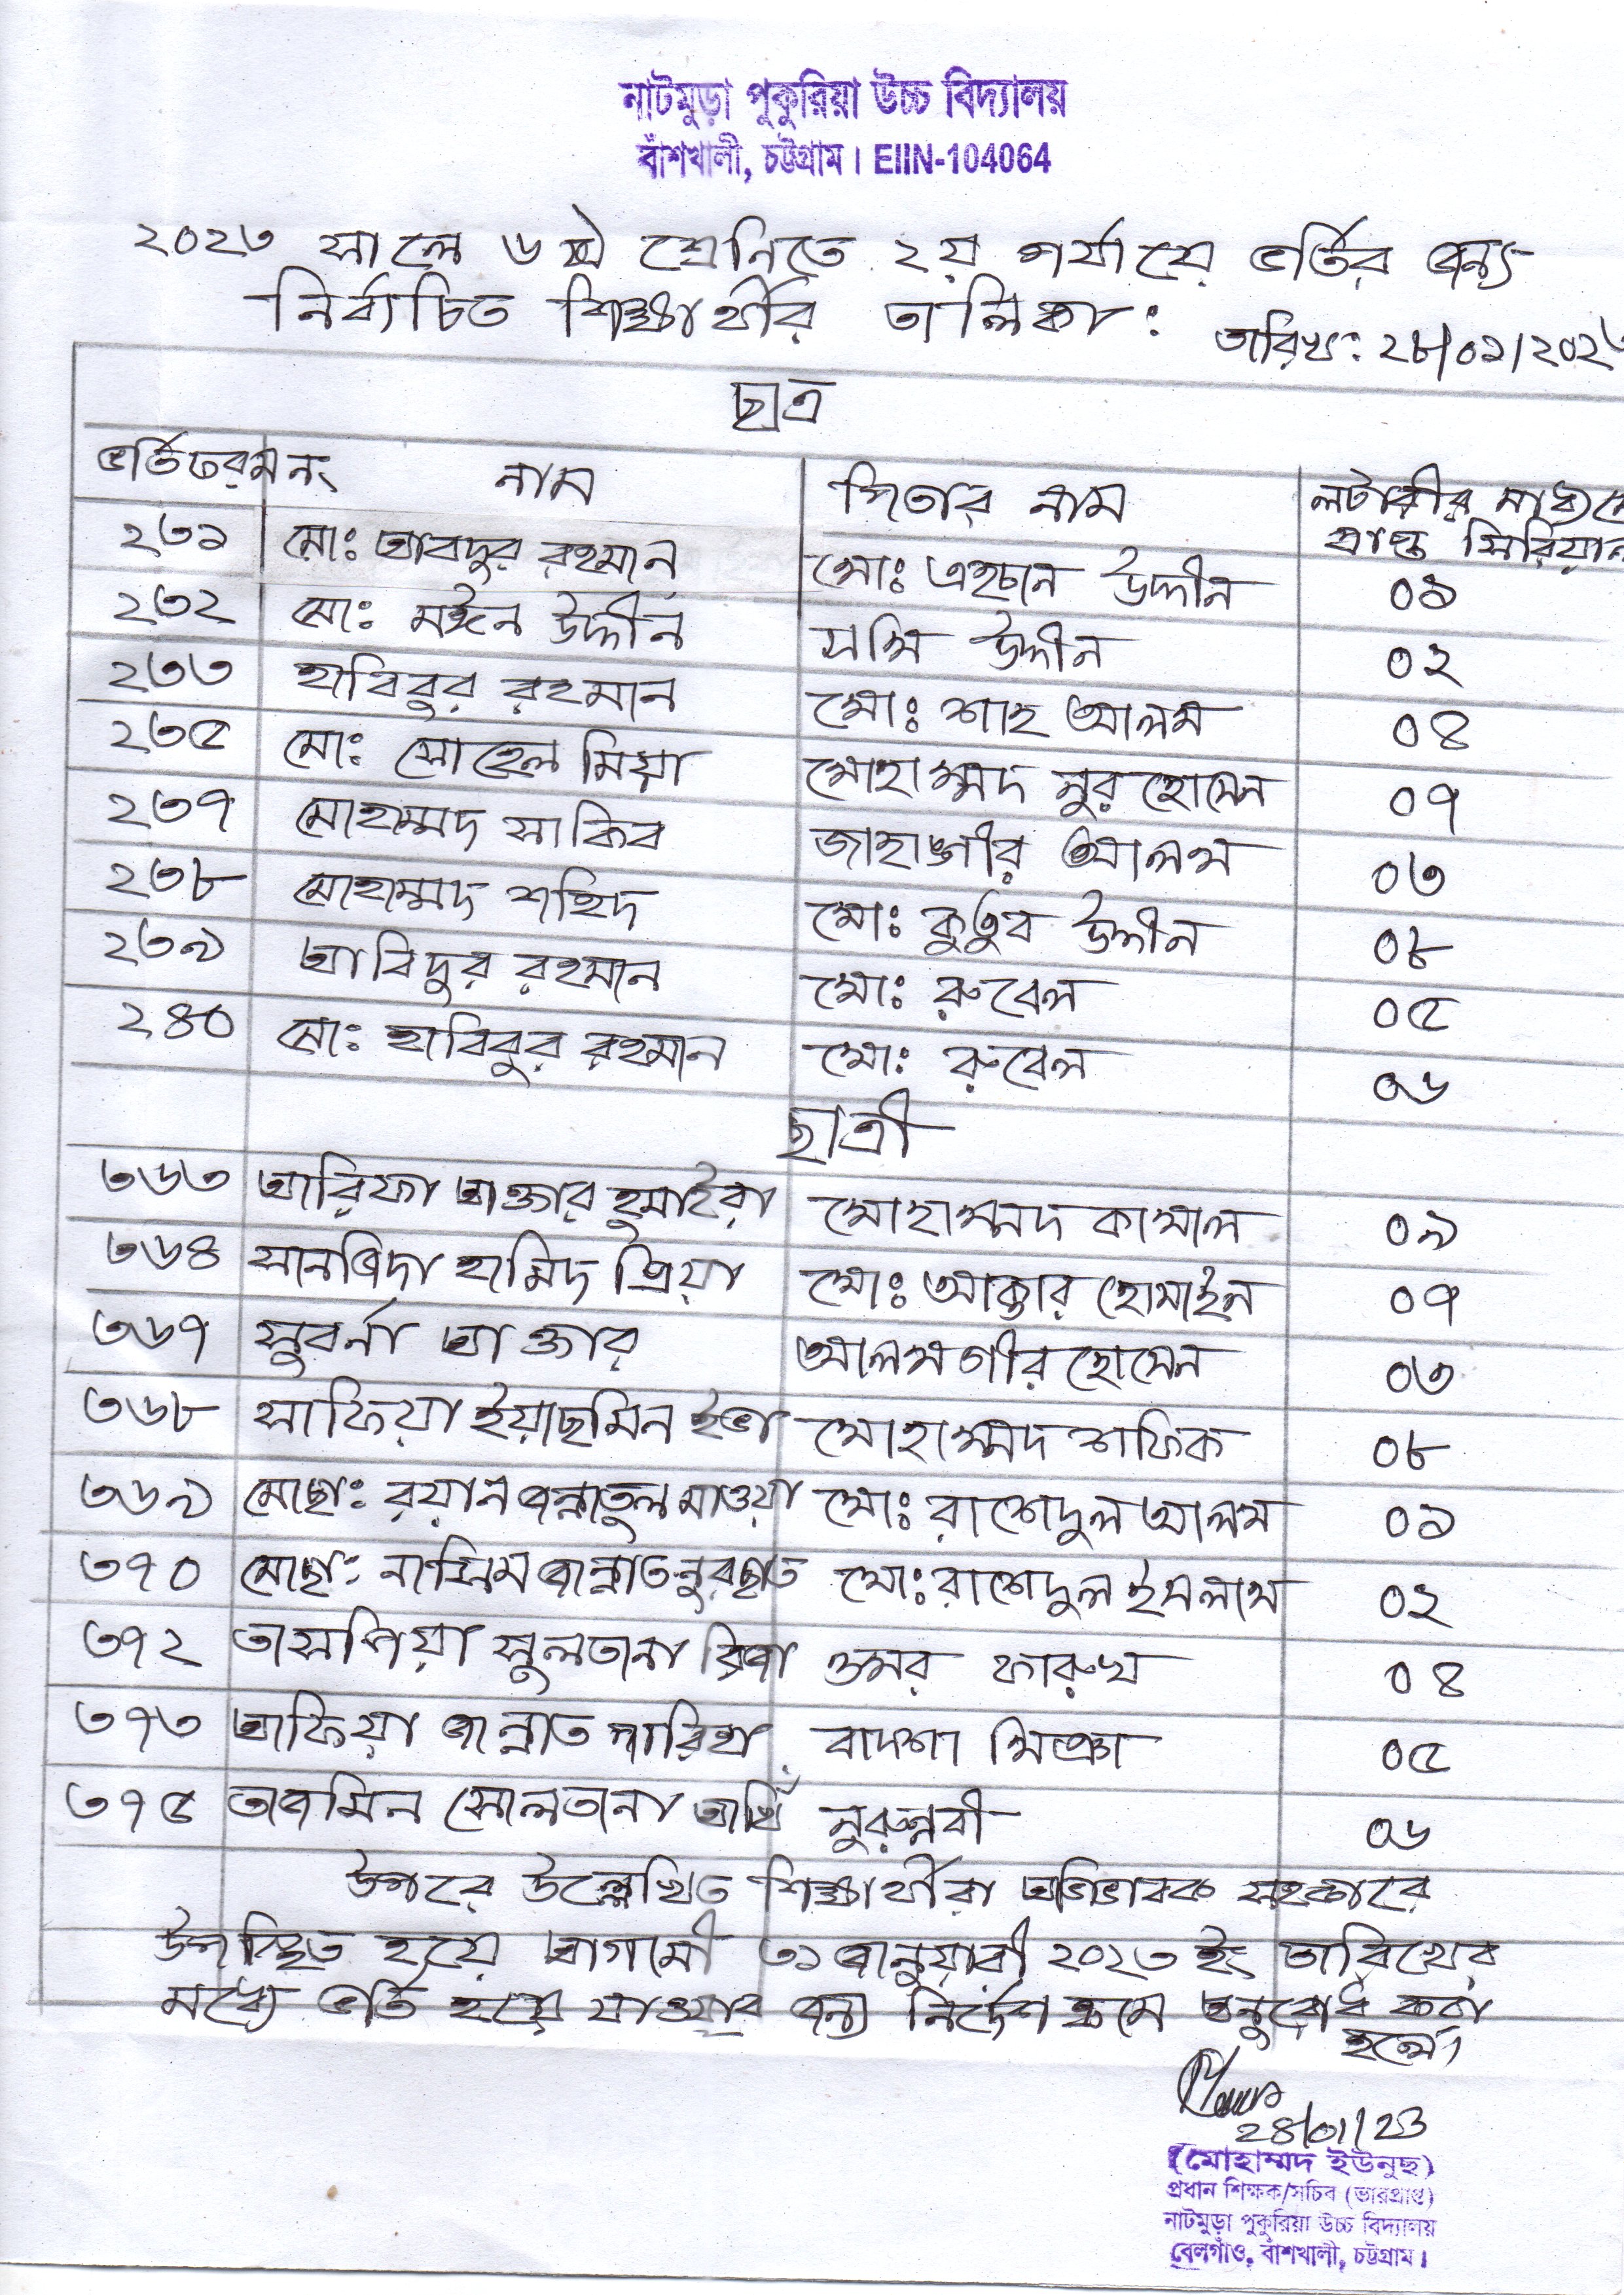 নাটমুড়া পুকুরিয়া উচ্চ বিদ্যালয়
বাঁশখালী, চট্টগ্রাম। EIIN-104064
২০২৩ সালে ৬ষ্ঠ শ্রেনিতে ২য় পর্যায়ে ভর্তির জন্য
নির্বাচিত শিক্ষার্থীর তালিকা:
তারিখ: ২৮/০১/২০২৩
ছাত্র
ভর্তিফরম নং নাম পিতার নাম লটারীর মাধ্যমে
প্রাপ্ত সিরিয়াল
২৩১ মো: আবদুর রহমান মো: এহছান উদ্দীন ০১
২৩২ মো: মঈন উদ্দীন উদ্দীন ০২
২৩৩ হাবিবুর রহমান মো: শাহ আলম ০৪
২৩৫ মো: সোহেল মিয়া মোহাম্মদ নুর হোসেন ০৭
২৩৭ মোহাম্মদ সাকিব জাহাঙ্গীর আলম ০৩
২৩৮ মোহাম্মদ শহিদ মো: কুতুব উদ্দীন ০৮
২৩৯ আবিদুর রহমান মো: রুবেল ০৫
২৪০ মো: হাবিবুর রহমান মো: রুবেল ০৬
ছাত্রী
৩৬৩ আরিফা আক্তার হুমাইরা মোহাম্মদ কামাল ০৯
৩৬৪ সানজিদা হামিদ প্রিয়া মো: আক্তার হোসাইন ০৭
৩৬৭ সুবর্না আক্তার আলমগীর হোসেন ০৩
৩৬৮ সাফিয়া ইয়াছমিন ইভা মোহাম্মদ শফিক ০৮
৩৬৯ মোছা: রয়ান জন্নাতুল মাওয়া মো: রাশেদুল আলম ০১
৩৭০ মোছা: জান্নাত মো: রাশেদুল ইসলাম ০২
৩৭২ তাসপিয়া সুলতানা রিজা ওমর ফারুখ ০৪
৩৭৩ আফিয়া জান্নাত মারিহা বাদশা মিঞা ০৫
৩৭৫ তাজমিন সোলতানা আঁখি নুরুন্নবী ০৬
উপরে উল্লেখিত শিক্ষার্থীরা অভিভাবক সহকারে
উপস্থিত হয়ে আগামী ৩১ জানুয়ারী ২০২৩ ইং তারিখের
মধ্যে ভর্তি হয়ে যাওয়ার জন্য নির্দেশ ক্রমে অনুরোধ করা
হলো।
28/01/23
(মোহাম্মদ ইউনুছ)
প্রধান শিক্ষক/সচিব (ভারপ্রাপ্ত)
নাটমুড়া পুকুরিয়া উচ্চ বিদ্যালয়
বেলগাঁও, বাঁশখালী, চট্টগ্রাম।